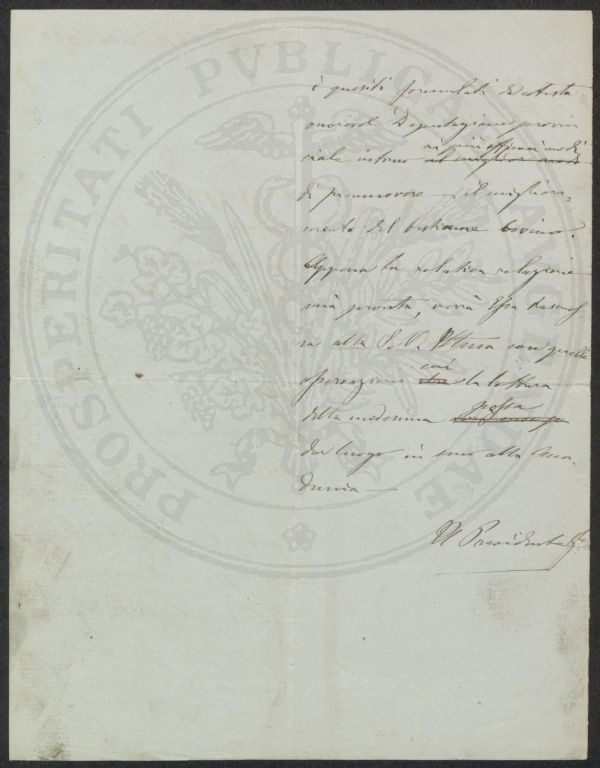 PROSPERITATI PVBLICAE AVGENDAE
i quesiti formulati da codesta
onorevole Deputazione provin
ciale intorno ai più efficaci modi
il miglior modo
di promuovere il migliora=
mento del bestiame bovino.
Appena la relativa relazione
sarà pronta, verrà Essa trasmes
sa alla S. V. Ill.ma con quelle
osservazioni cui la lettura
della medesima possa
dar luogo in seno alla Acca-
demia —
Il Presidente